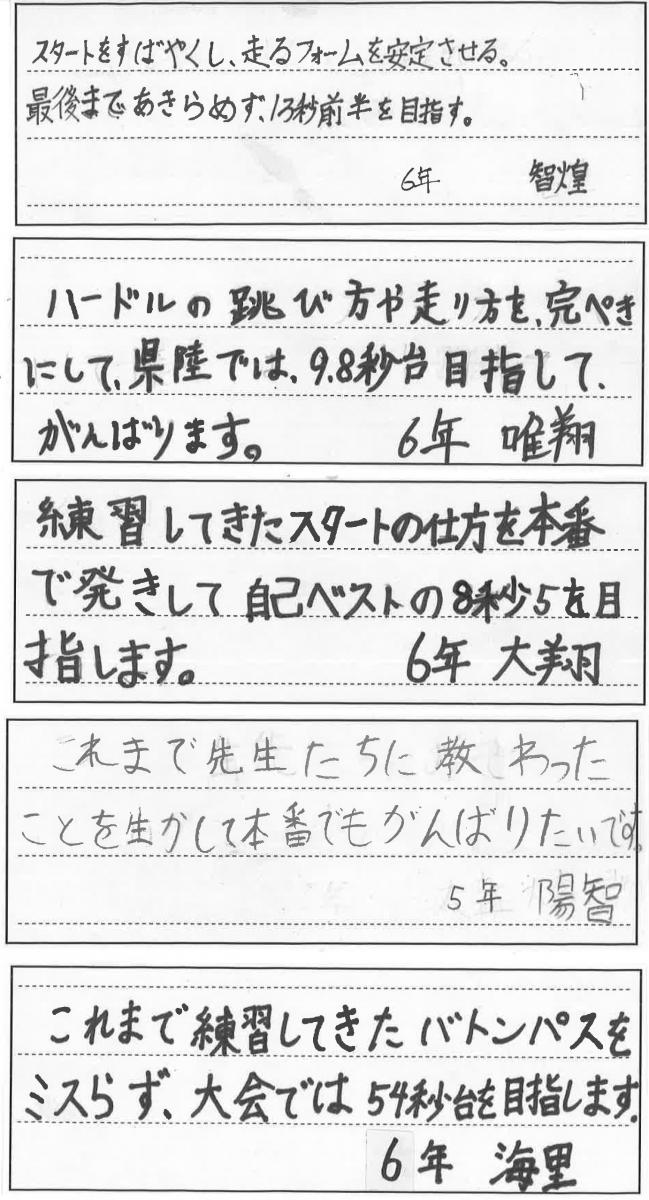 スタートをすばやくし、走るフォームを安定させる。
最後まであきらめず、13秒前半を目指す。
6年 智煌
ハードルの跳び方や走り方を、完ぺき
にして、県陸では、9.8秒台目指して、
がんばります。 6年 唯翔
練習してきたスタートの仕方を本番
で発きして自己ベストの8秒5を目
指します。 6年 大翔
これまで先生たちに教しわった
ことを生かして本番でもがんばりたいです。
5年 陽智
これまで練習してきたバトンパスを
ミスらず、大会では54秒台を目指します。
6年 海里